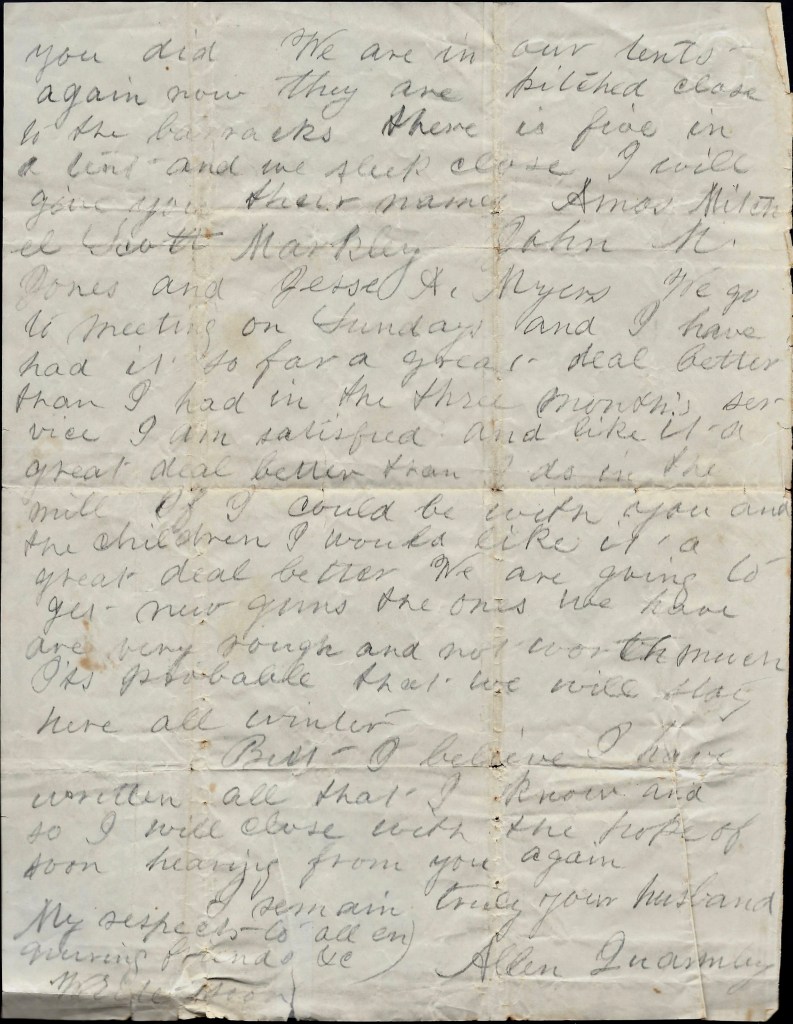 you did We are in our tents
again now they are pitched close
to the barracks there is five in
a tent and we sleep close I will
give you their names Amos Mitch
el Scott Markley John M.
Jones and Jesse A. Myers We go
to meeting on Sundays and I have
had it so far a great deal better
than I had in the three month's ser
vice I am satisfied and like it a
great deal better than I do in the
mill If I could be with you and
the children I would like it a
great deal better We are going to
get new guns the ones we have
are very rough and not worth much
Its probable that we will stay
here all winter
But I believe I have
written all that I know and
so I will close with the hope of
soon hearing from you again
I remain truly your husband
My respects to all en)
quiring friends &c ) Allen Quarmby
Write soon)